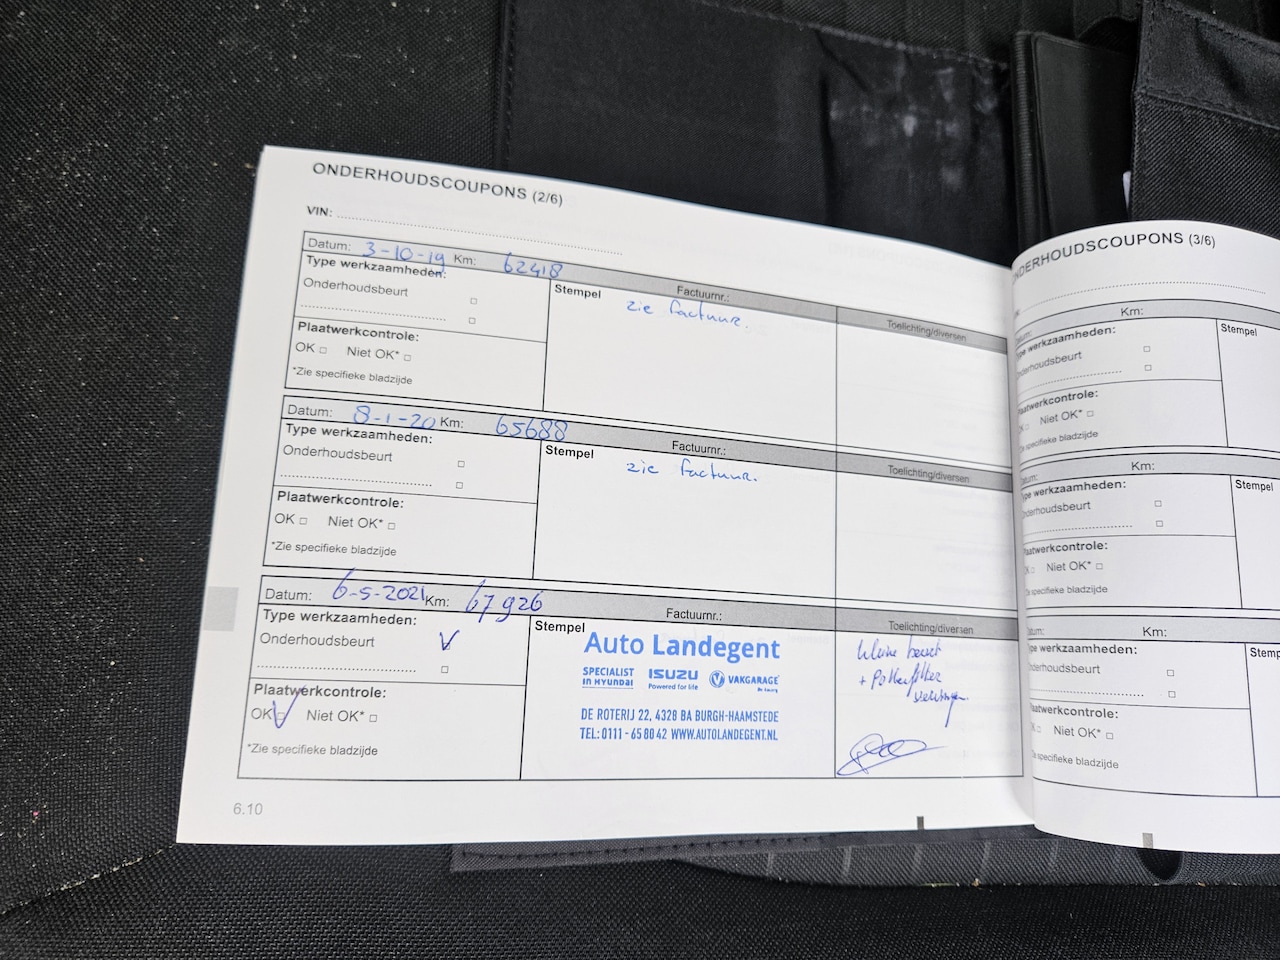 ONDERHOUDSCOUPONS (2/6)
VIN:
Datum: 3-10-19 Km: 62418
Factuurnr.:
Type werkzaamheden:
Stempel zie factuur.
Toelichting/diversen
Onderhoudsbeurt
Plaatwerkcontrole:
OK Niet OK*
*Zie specifieke bladzijde
Datum: 8-1-20 Km: 65688
Factuurnr.:
Type werkzaamheden:
Stempel zie factuur.
Toelichting/diversen
Onderhoudsbeurt
Plaatwerkcontrole:
OK Niet OK*
*Zie specifieke bladzijde
Datum: 6-5-2021 Km: 67926
Factuurnr.:
Type werkzaamheden:
Stempel
Toelichting/diversen
Onderhoudsbeurt
Plaatwerkcontrole:
OK Niet OK*
*Zie specifieke bladzijde
Auto Landegent
SPECIALIST in HYUNDAI
ISUZU Powered for life
VAKGARAGE
DE ROTERIJ 22, 4328 BA BURGH-HAAMSTEDE
TEL: 0111 - 65 80 42 WWW.AUTOLANDEGENT.NL
kleine beurt
+ Pollenfilter
6.10
ONDERHOUDSCOUPONS (3/6)
Km:
Type werkzaamheden:
Stempel
Onderhoudsbeurt
Plaatwerkcontrole:
OK Niet OK*
specifieke bladzijde
Datum: Km:
Type werkzaamheden:
Stempel
Onderhoudsbeurt
Plaatwerkcontrole:
OK Niet OK*
specifieke bladzijde
Datum: Km:
Type werkzaamheden:
Stemp
Onderhoudsbeurt
Plaatwerkcontrole:
OK Niet OK*
specifieke bladzijde